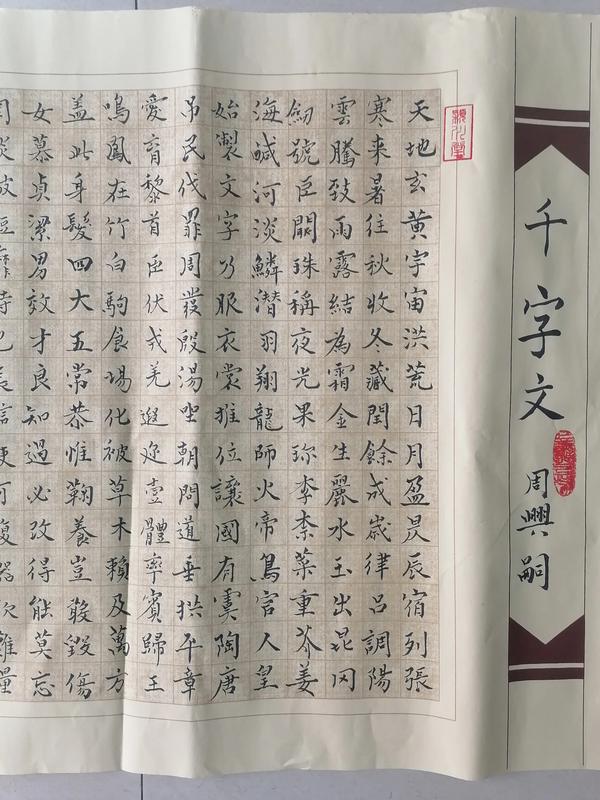 千字文
周興嗣
天地玄黃宇宙洪荒日月盈昃辰宿列張
寒来暑往秋收冬藏閏餘成歲律呂調陽
雲騰致雨露結為霜金生麗水玉出昆冈
劍號巨闕珠稱夜光果珍李柰菜重芥姜
海鹹河淡鱗潛羽翔龍師火帝鳥官人皇
始製文字乃服衣裳推位讓國有虞陶唐
吊民伐罪周發殷湯坐朝問道垂拱平章
愛育黎首臣伏戎羌遐迩壹體率賓歸王
鳴鳳在竹白駒食場化被草木賴及萬方
盖此身髮四大五常恭惟鞠養豈敢毀傷
女慕貞潔男效才良知過必改得能莫忘
罔談彼短靡恃己長信使可覆器欲難量